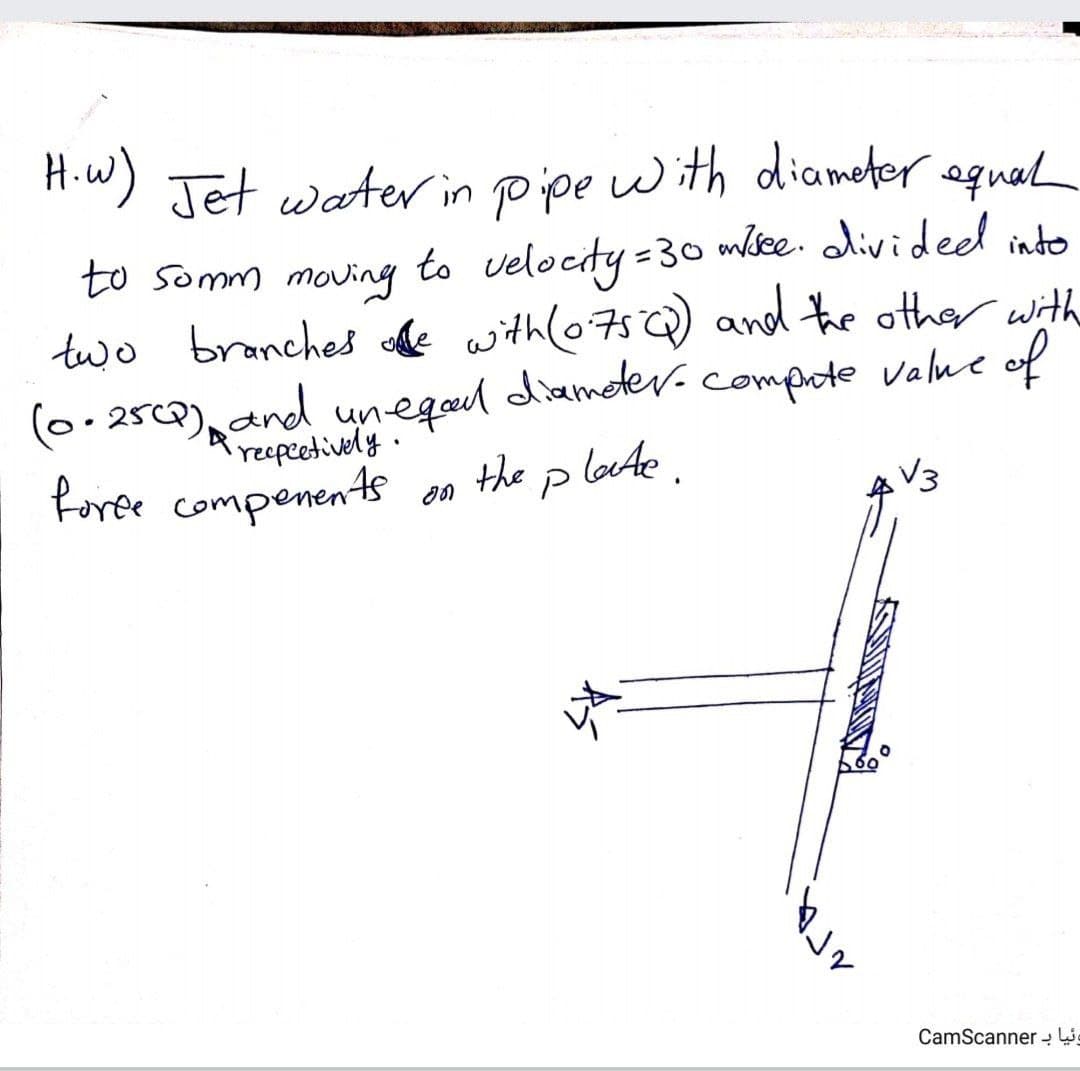 H.w) Jet water in pipe with diameter equal
to 50mm moving to velocity = 30 m/sec. divided into
two branches with (0.75Q) and the other with
(0.25Q) and unequal diameter. compute value of
recpectively.
force compenents on the plate.
V3
V1
60°
V2
CamScanner بـ